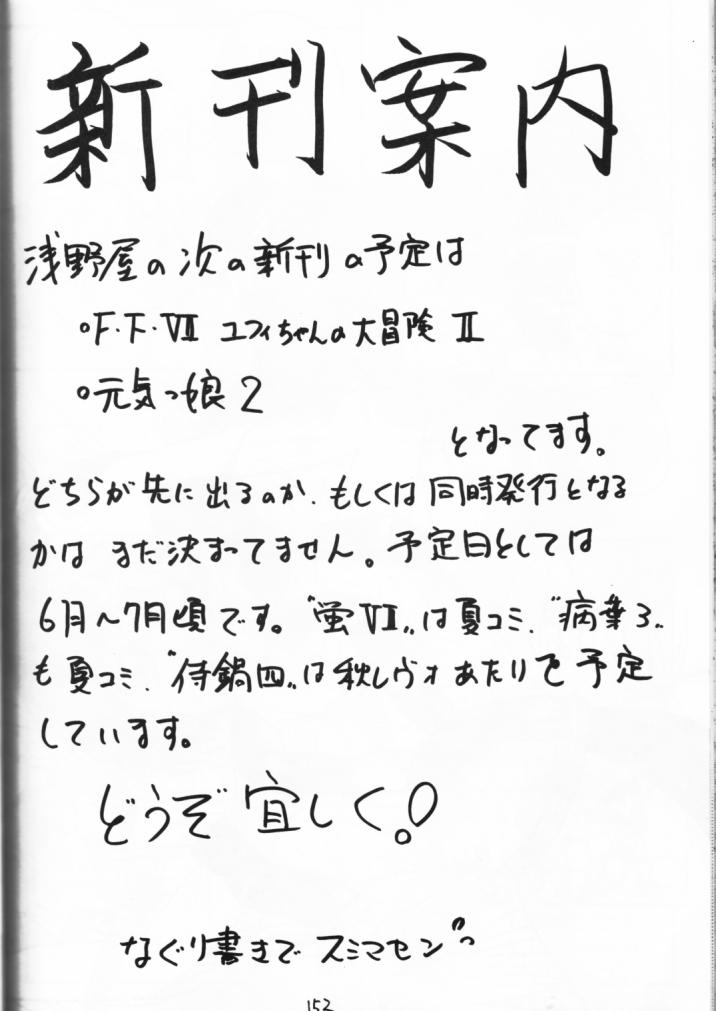 新刊案内
浅野屋の次の新刊の予定は
○F.F.VII ユフィちゃんの大冒険 II
○元気っ娘 2
となってます。
どちらが先に出るのか、もしくは同時発行となる
かは まだ決まってません。予定日としては
6月〜7月頃です。“蛍VI„は夏コミ、“病葉3„
も夏コミ、“侍鍋四„は秋レヴォあたりで予定
しています。
どうぞ宜しく!
なぐり書きで スミマセン
152